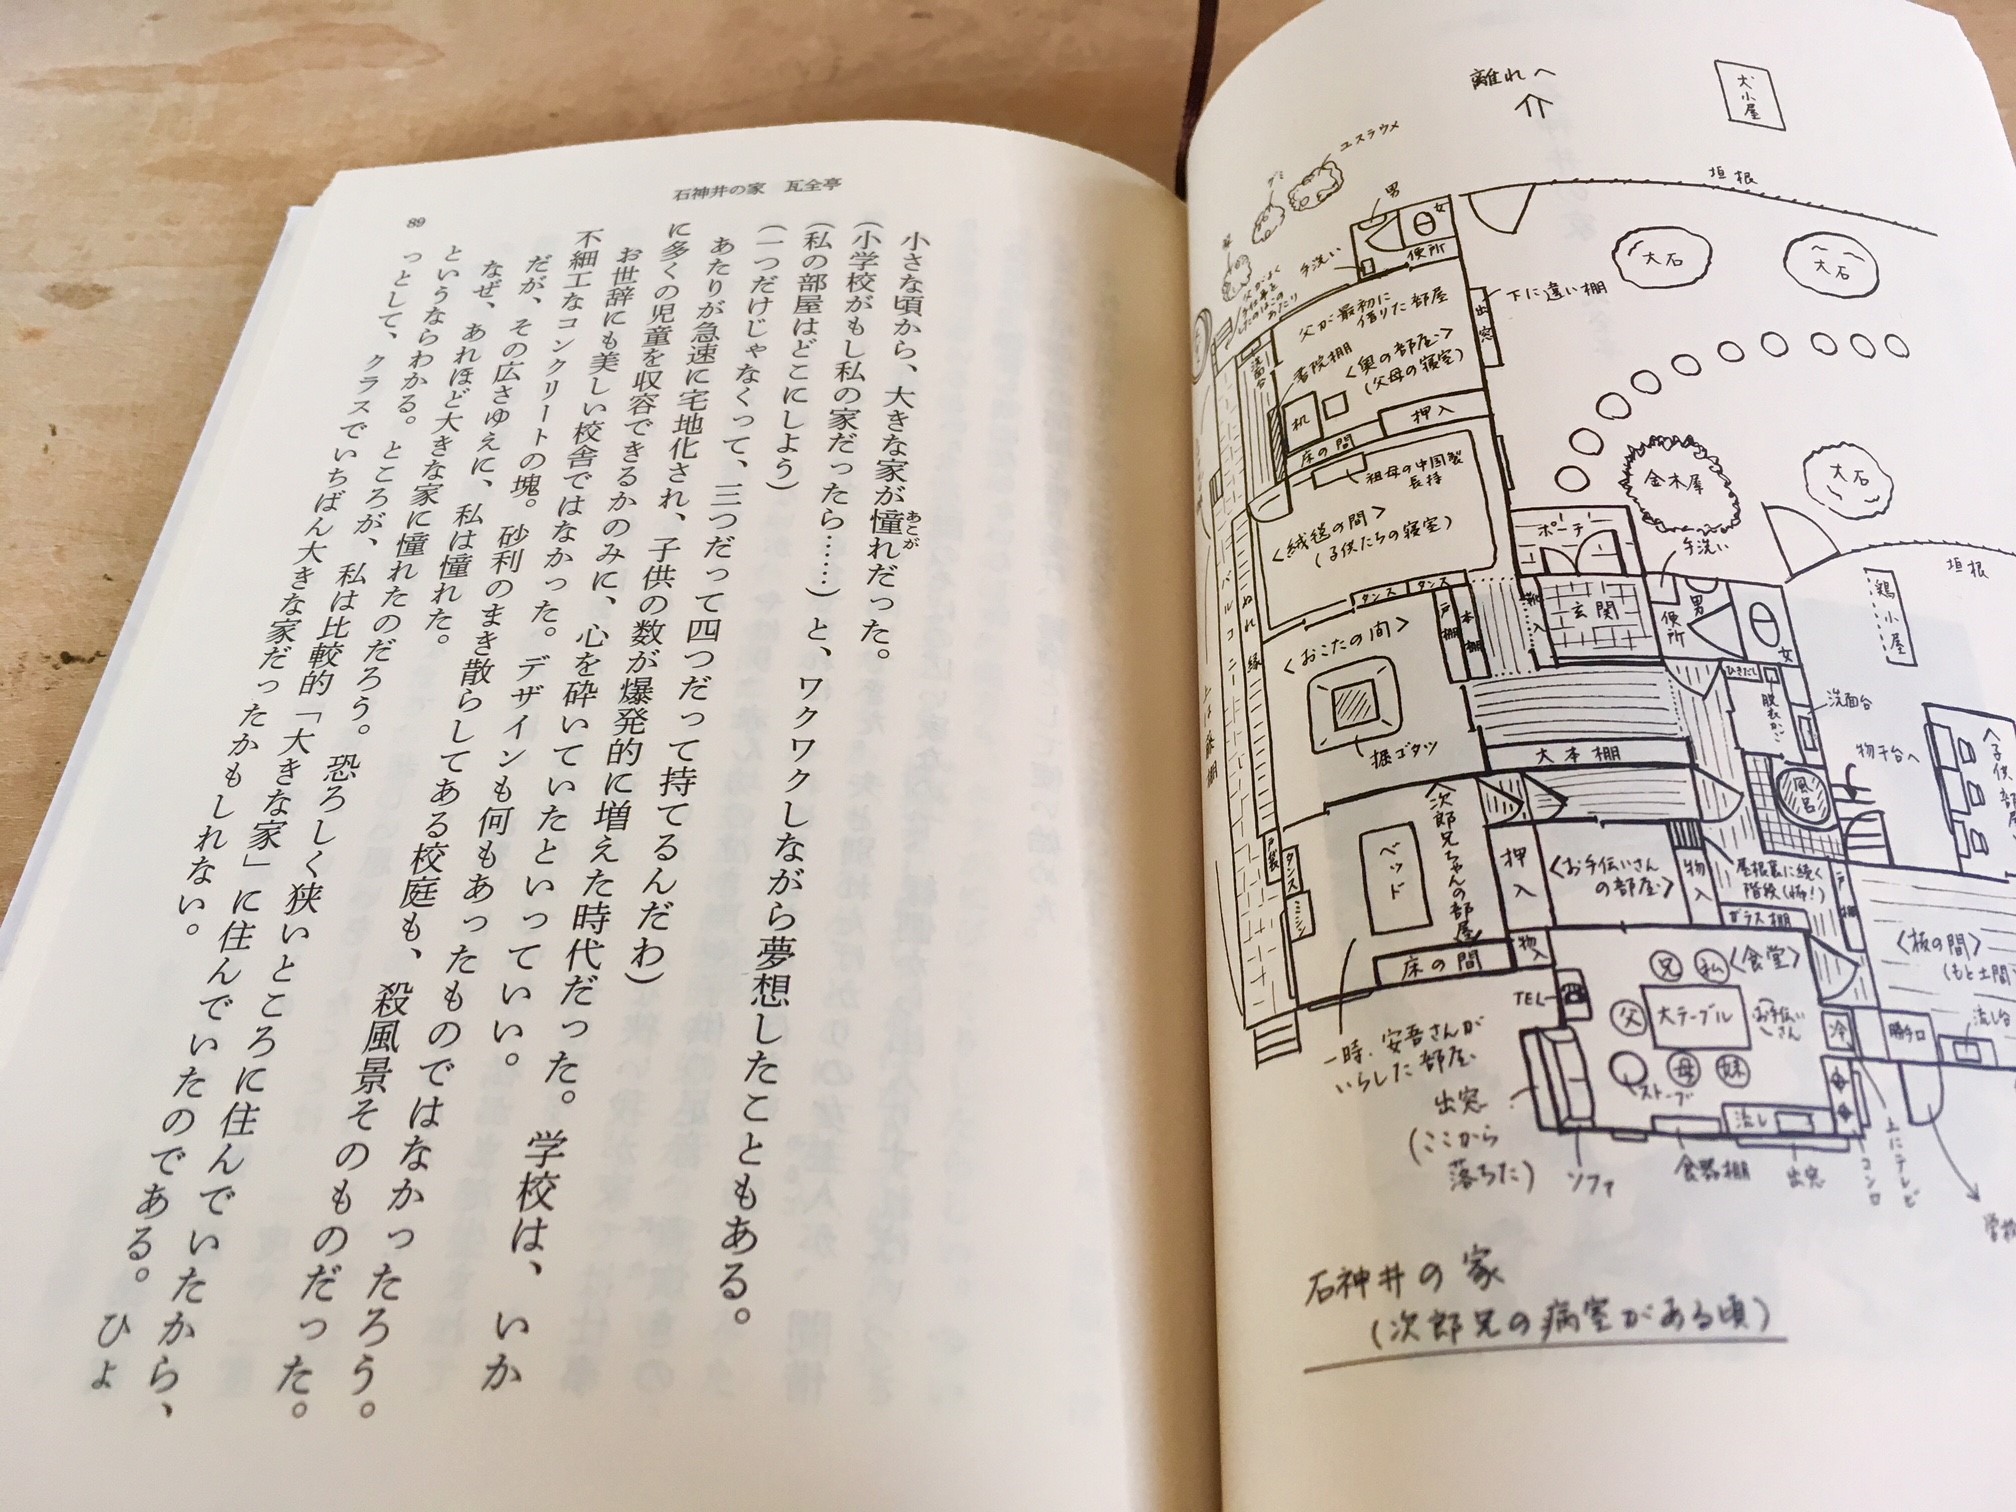 離れへ
犬小屋
ユスラウメ
垣根
男
女
便所
手洗い
大石
大石
下に違い棚
出窓
父が最初に
借りた部屋
〈奥の部屋〉
(父母の寝室)
書院棚
机
押入
床の間
祖母の中国製
長持
〈絨毯の間〉
(子供たちの寝室)
金木犀
大石
ポーチ
手洗い
垣根
鶏小屋
タンス
タンス
戸棚
本棚
玄関
便所
男
女
ぬれ縁
バルコニー
〈おこたの間〉
掘ゴタツ
大本棚
ひきだし
脱衣かご
洗面台
物干台へ
風呂
〈次郎兄ちゃんの部屋〉
ベッド
戸袋
タンス
ミシン
押入
〈お手伝いさん
の部屋〉
物入
屋根裏に続く
階段(怖!)
ガラス棚
戸棚
床の間
物入
〈板の間〉
(もと土間)
〈食堂〉
兄
私
父
大テーブル
お手伝い
さん
母
妹
ストーブ
TEL
冷
勝手口
流し台
一時、安吾さんが
いらした部屋
出窓
(ここから
落ちた)
ソファ
食器棚
流し
出窓
コンロ
上にテレビ
石神井の家
(次郎兄の病室がある頃)
石神井の家 瓦全亭
89
小さな頃から、大きな家が憧れだった。
あこが
(小学校がもし私の家だったら……)と、ワクワクしながら夢想したこともある。
(私の部屋はどこにしよう)
(一つだけじゃなくって、三つだって四つだって持てるんだわ)
あたりが急速に宅地化され、子供の数が爆発的に増えた時代だった。学校は、いか
に多くの児童を収容できるかのみに、心を砕いていたといっていい。
お世辞にも美しい校舎ではなかった。デザインも何もあったものではなかったろう。
不細工なコンクリートの塊。砂利のまき散らしてある校庭も、殺風景そのものだった。
だが、その広さゆえに、私は憧れた。
なぜ、あれほど大きな家に憧れたのだろう。恐ろしく狭いところに住んでいたから、
というならわかる。ところが、私は比較的「大きな家」に住んでいたのである。ひょ
っとして、クラスでいちばん大きな家だったかもしれない。